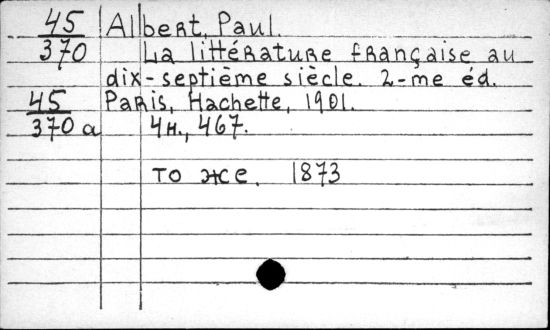 45 Albert, Paul.
370 La littérature française au
dix-septième siècle. 2-me éd.
45 Paris, Hachette, 1901.
370 a 4н., 467.
то же. 1873